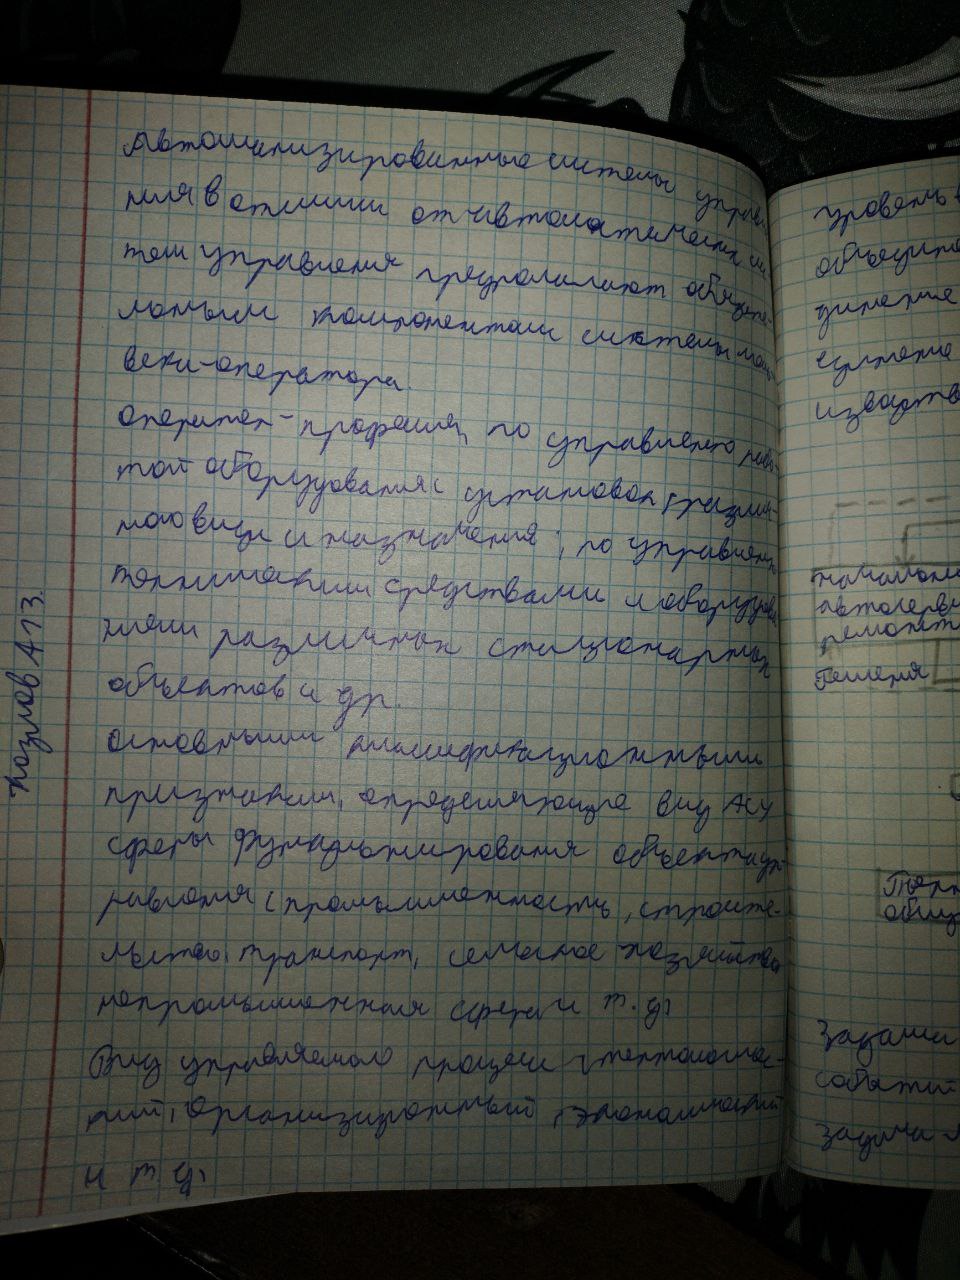 Автоматизированные системы управ
ния в отличии от автоматических сис
тем управления предполагают обязате-
льным компонентом системы чело-
века-оператора.
оператор - профессия, по управлению рабо-
той оборудования (установок) различ-
ного вида и назначения; по управлению
техническими средствами и оборудова
ниями различных стационарных
объектов и др.
основными классификационными
признаками, определяющие вид АСУ
сферы функционирования объекта уп-
равления (промышленность, строите-
льство, транспорт, сельское хозяйство
непромышленная сфера и т.д)
Вид управляемого процесса (технологичес-
кий, организационный, экономический
и т.д)
Козлов А-13.
уровень
объедин
изводств
начальни
автосерви
ремонт
Решения
Техн
общ
Задачи
событий
задача